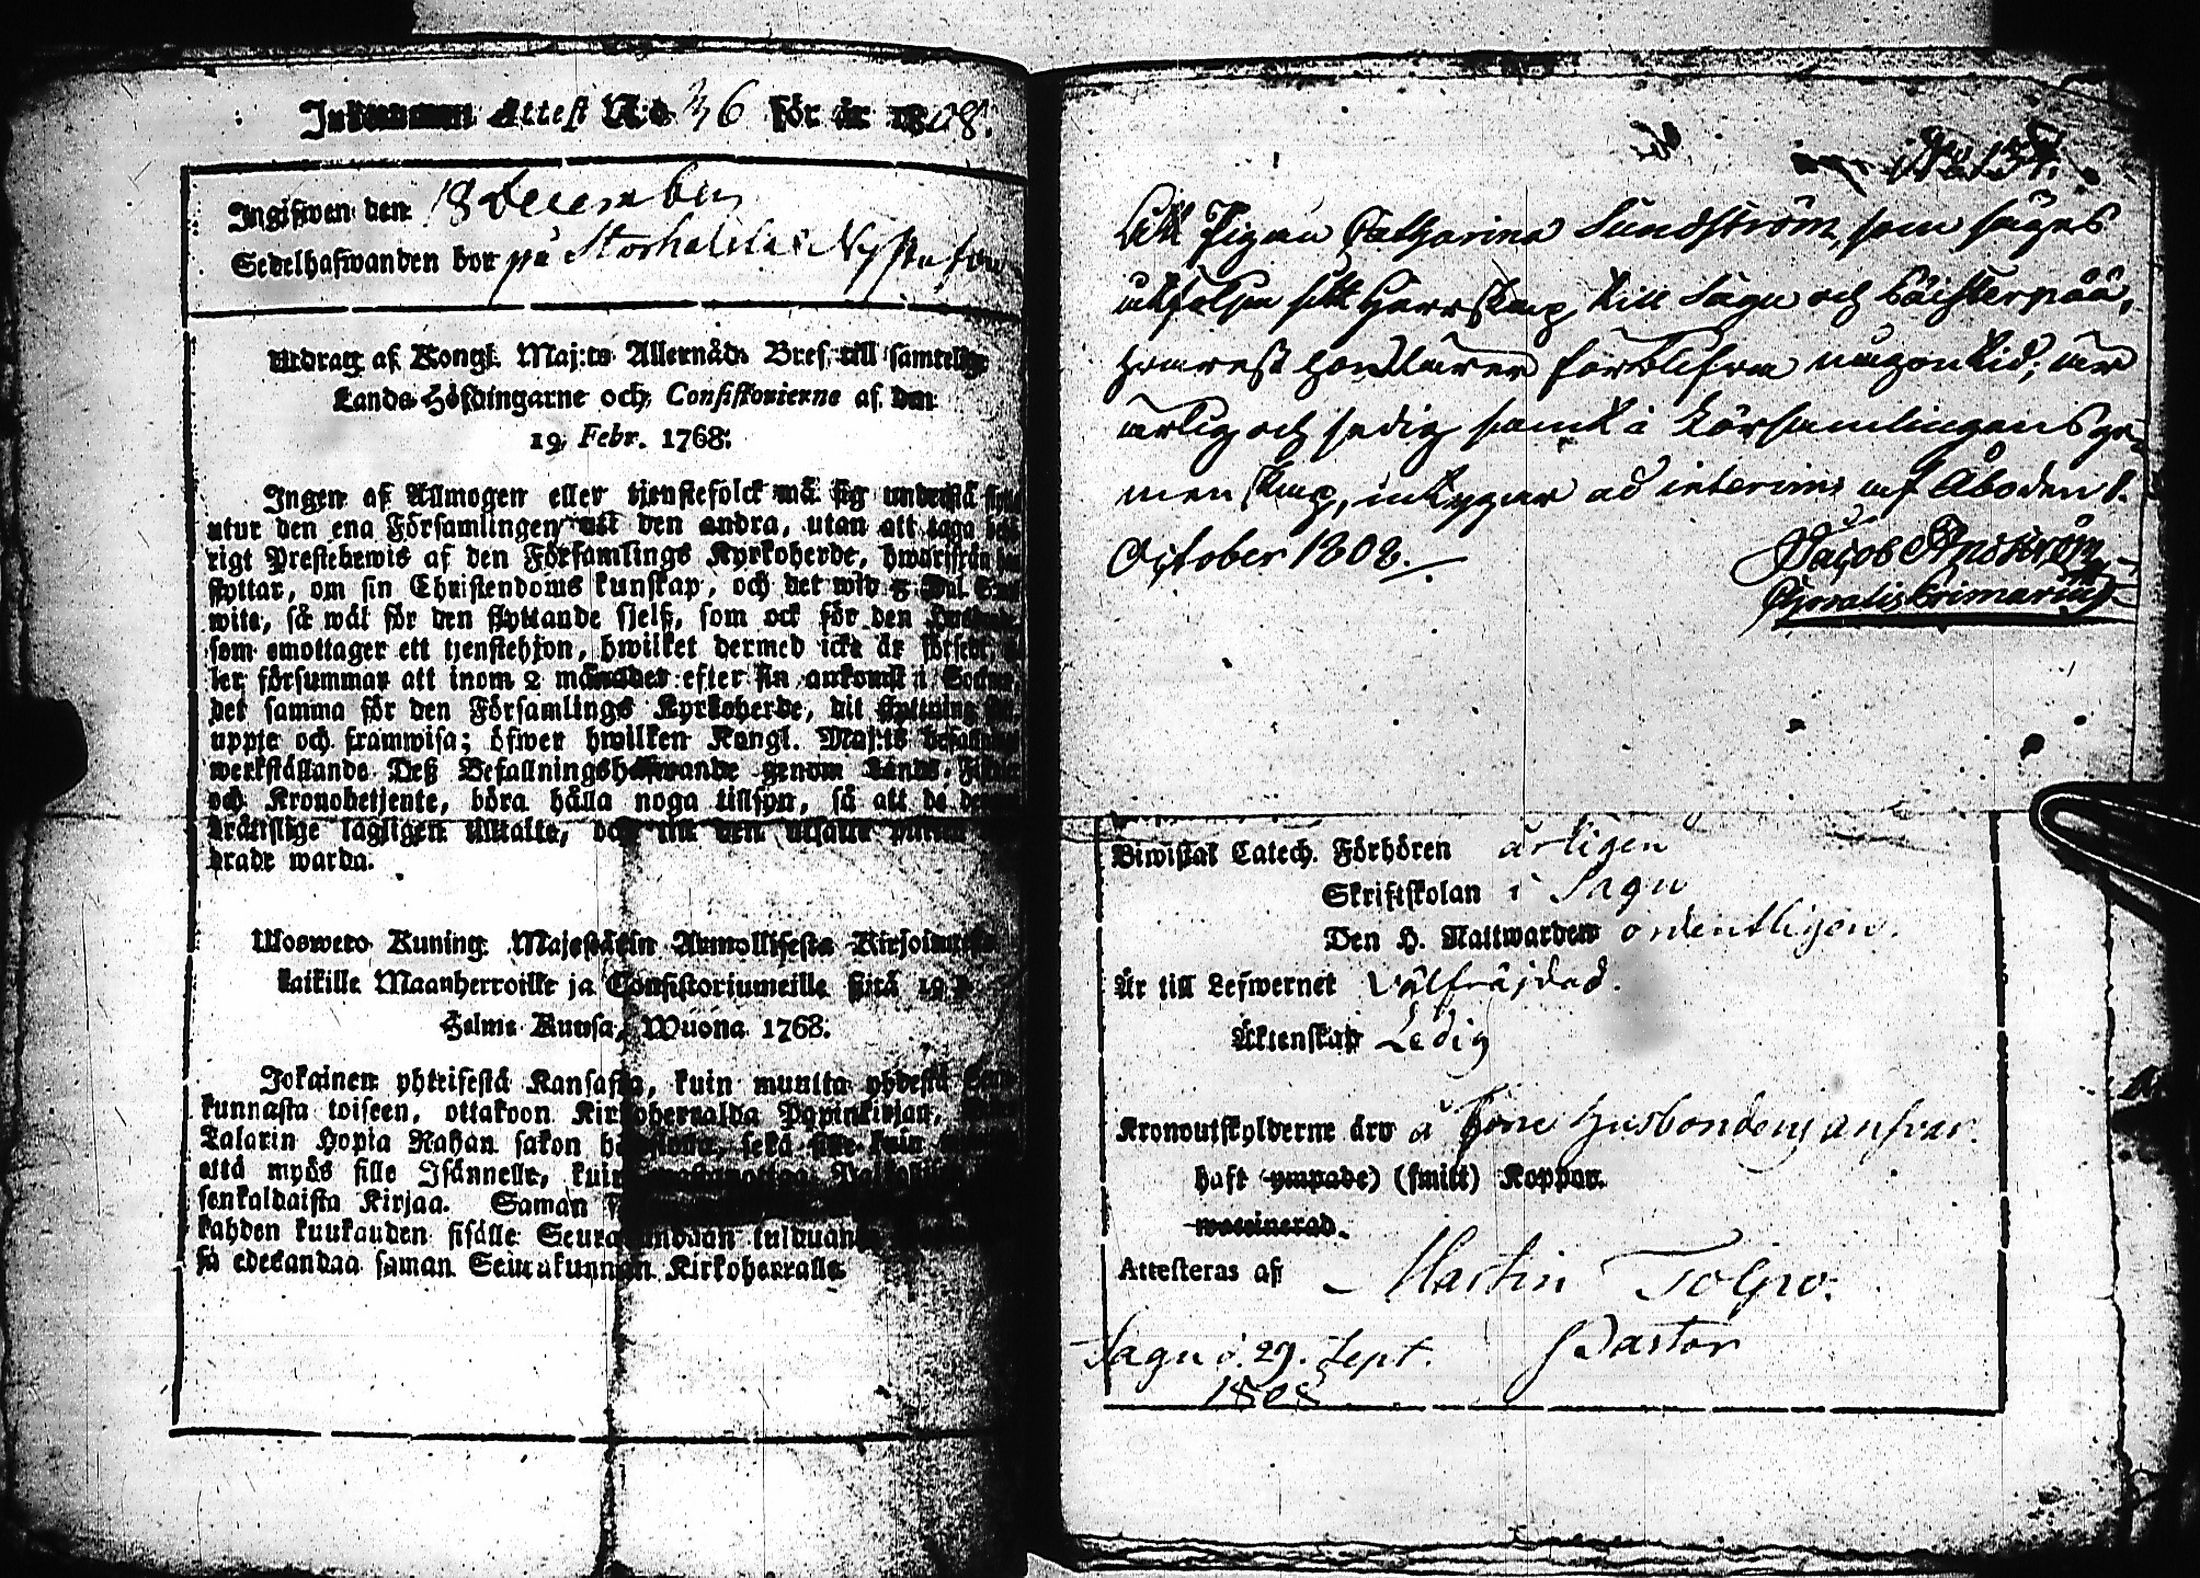 Inkommen Attest N:o 36 för år 1808.
Ingifwen den 18 December
Sedelhafwanden bor på Storheikkilä Nystu
Utdrag af Kongl. Maj:ts Allernåd. Bref till samtelige
Lands-Höfdingarne och Consistorierne af den
19 Febr. 1768.
Ingen af Allmogen eller tjenstefolck må sig understå
utur den ena Församlingen till den andra, utan att taga
rigt Prestebewis af den Församlings Kyrkoherde, hwarifrån
flyttar, om sin Christendoms kunskap, och det wid 8 Dal. S
wite, så wäl för den flyttande sjelf, som ock för den
som emottager ett tjenstehjon, hwilket dermed icke är försedt,
ler försummar att inom 2 månader efter sin ankomst i Socken
det samma för den Församlings Kyrkoherde, dit flyttning
uppte och framwisa; öfwer hwilken Kongl. Maj:ts befallning
werkställande Deß Befallningshafwande genom Lands-
och Kronobetjente, böra hålla noga tillsyn, så att de
brättslige lagligen tilltalte, och
drade warda.
Uloswето Kuning. Majestätin Armollisesta Kirjoituksesta
kaikille Maanherroille ja Consistoriumeille siitä 19 p.
Helme Kuusa, Wuona 1768.
Jokainen yhteisestä Kansasta, kuin muutta yhdestä
kunnasta toiseen, ottakoon Kirkoherralda Papinkirjan,
Talarin Hopia Rahan sakon sekä sille kuin
että myös sille Isännelle, kuin
senkaldaista Kirjaa. Saman
kahden kuukauden sisälle Seurakundaan tulduan
sä edeskandaa saman Seurakunnan Kirkoherralle
Att Pigan Catharina Sundström, som säges
utfölja sitt Herrskap till Sagu och Böisterpää,
hemrest hon lärer förblifva någon tid, är
ärlig och sedig samt i Församlingens ge-
menskap, intygar ad interim af Åbo den 1.
October 1808.
Jacob
Choralis Primarius
Biwistat Catech. Förhören årligen
Skriftskolan i Sagu
Den H. Nattwarden ordentligen.
Är till Lefwernet Välfräjdad.
Äktenskap Ledig
Kronoutskylderne äro å Husbondens ansvar.
haft (ympade) (smitt) Koppor.
waccinerad.
Attesteras af Martin Tolpo.
Pastor
Sagu d. 29. Sept.
1808